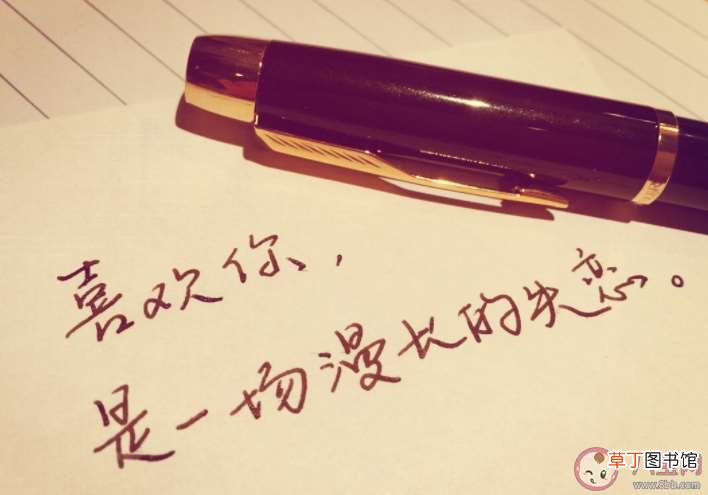 喜欢你，
是一场漫长的失恋。
草丁图书馆
www.8bb.com